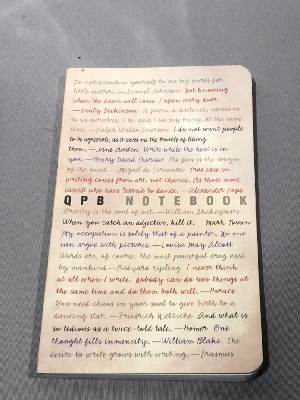 Do not accustom yourself to use big words for
little matters. —Samuel Johnson Not knowing
when the dawn will come, I open every door.
—Emily Dickinson A poem, a sentence, causes us
to see ourselves. I be, and I see my being, at the same
time. —Ralph Waldo Emerson I do not want people
to be agreeable, as it saves me the trouble of liking
them. —Jane Austen Write while the heat is in
you. —Henry David Thoreau The pen is the tongue
of the mind. —Miguel de Cervantes True ease in
writing comes from art, not chance, As those move
easiest who have learn'd to dance. —Alexander Pope
QPB NOTEBOOK
Brevity is the soul of wit. —William Shakespeare
When you catch an adjective, kill it. —Mark Twain
My occupation is solely that of a painter. No one
can argue with pictures. —Louisa May Alcott
Words are, of course, the most powerful drug used
by mankind —Rudyard Kipling I never think
at all when I write. Nobody can do two things at
the same time and do them both well. —Horace
You need chaos in your soul to give birth to a
dancing star. —Friedrich Nietzsche And what is
so tedious as a twice-told tale. —Homer One
thought fills immensity. —William Blake The
desire to write grows with writing. —Erasmus